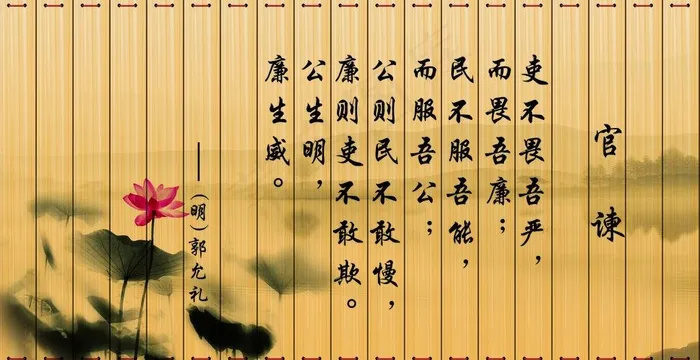 官谏
吏不畏吾严，
而畏吾廉；
民不服吾能，
而服吾公；
公则民不敢慢，
廉则吏不敢欺。
公生明，
廉生威。
—(明)郭允礼